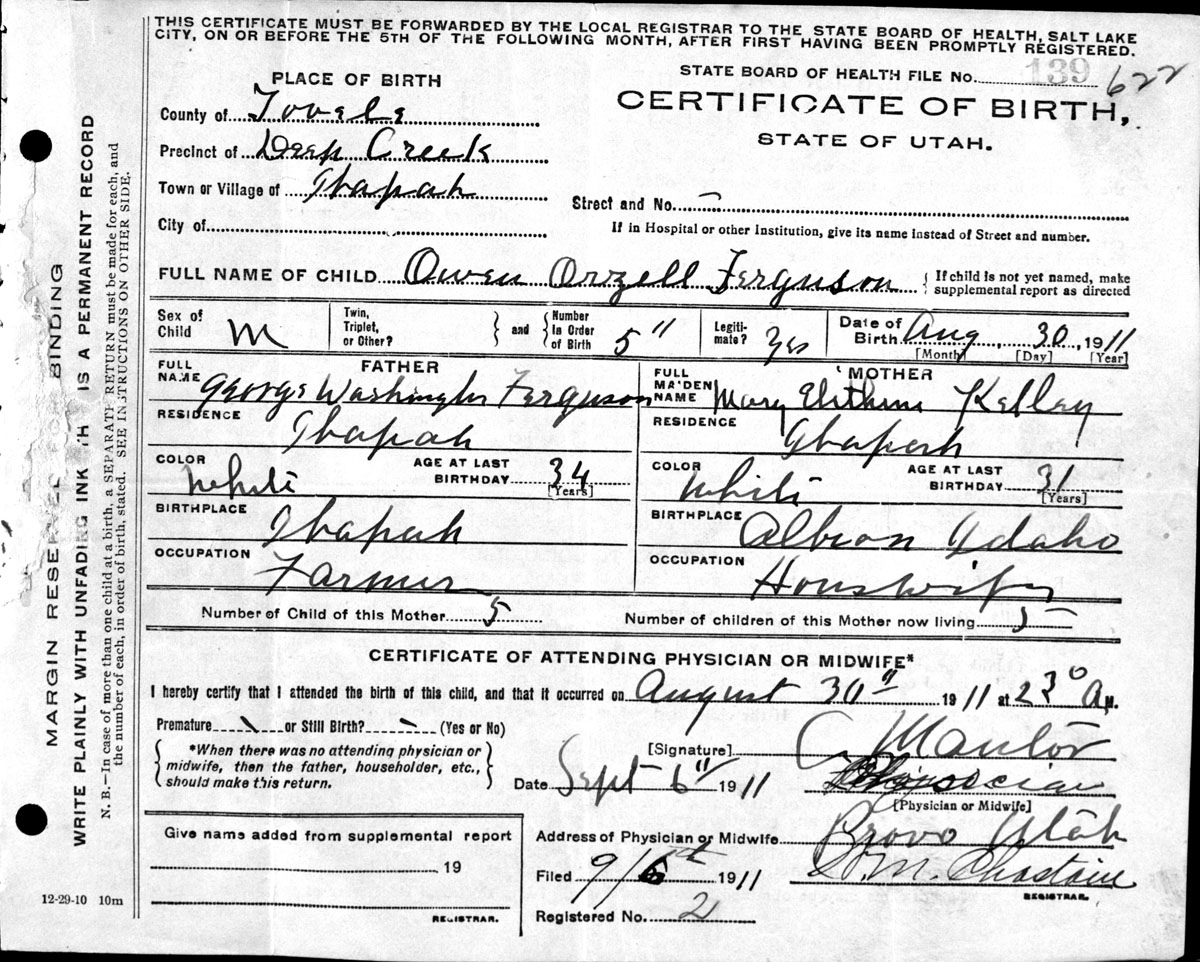 THIS CERTIFICATE MUST BE FORWARDED BY THE LOCAL REGISTRAR TO THE STATE BOARD OF HEALTH, SALT LAKE
CITY, ON OR BEFORE THE 5TH OF THE FOLLOWING MONTH, AFTER FIRST HAVING BEEN PROMPTLY REGISTERED.
PLACE OF BIRTH
STATE BOARD OF HEALTH FILE No. 139 622
CERTIFICATE OF BIRTH,
STATE OF UTAH.
County of Tooele
Precinct of Deep Creek
Town or Village of Ibapah
Street and No. –
City of
If in Hospital or other Institution, give its name instead of Street and number.
FULL NAME OF CHILD Owen Orzell Ferguson { If child is not yet named, make
supplemental report as directed
Sex of Child M
Twin, Triplet, or Other? } and { Number in Order of Birth 5"
Legitimate? Yes
Date of Birth Aug 30, 1911
[Month] [Day] [Year]
FATHER
FULL NAME George Washington Ferguson
RESIDENCE Ibapah
COLOR White AGE AT LAST BIRTHDAY 34 [Years]
BIRTHPLACE Ibapah
OCCUPATION Farmer
MOTHER
FULL MAIDEN NAME Mary Kelley
RESIDENCE Ibapah
COLOR White AGE AT LAST BIRTHDAY 31 [Years]
BIRTHPLACE Albion Idaho
OCCUPATION Houswife
Number of Child of this Mother 5 Number of children of this Mother now living 5
CERTIFICATE OF ATTENDING PHYSICIAN OR MIDWIFE*
I hereby certify that I attended the birth of this child, and that it occurred on August 30" 1911 at 2 30 A M.
Premature or Still Birth? (Yes or No)
{ *When there was no attending physician or
midwife, then the father, householder, etc.,
should make this return. }
[Signature]
Date Sept 6" 1911 Physician
[Physician or Midwife]
Give name added from supplemental report
19
REGISTRAR.
Address of Physician or Midwife Provo Utah
Filed 9/6th 1911 M. Chastain
REGISTRAR.
Registered No. 2
12-29-10 10m
MARGIN RESERVED FOR BINDING
WRITE PLAINLY WITH UNFADING INK TH IS A PERMANENT RECORD
N. B.—In case of more than one child at a birth, a SEPARATE RETURN must be made for each, and
the number of each, in order of birth, stated. SEE INSTRUCTIONS ON OTHER SIDE.